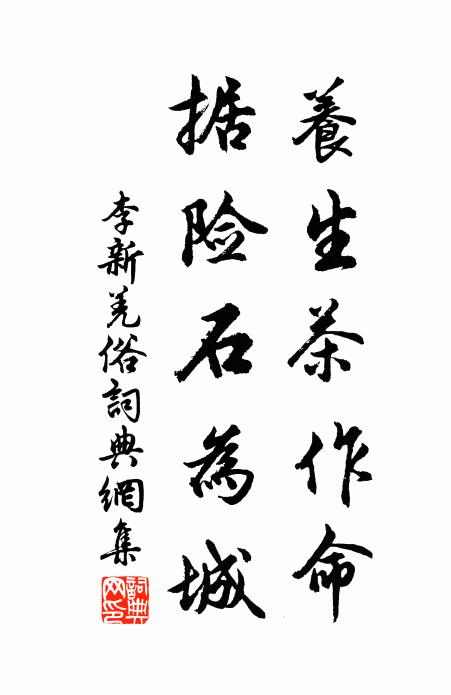 養生茶作命
据险石為城
李新羌俗詞典網集
詞典网印